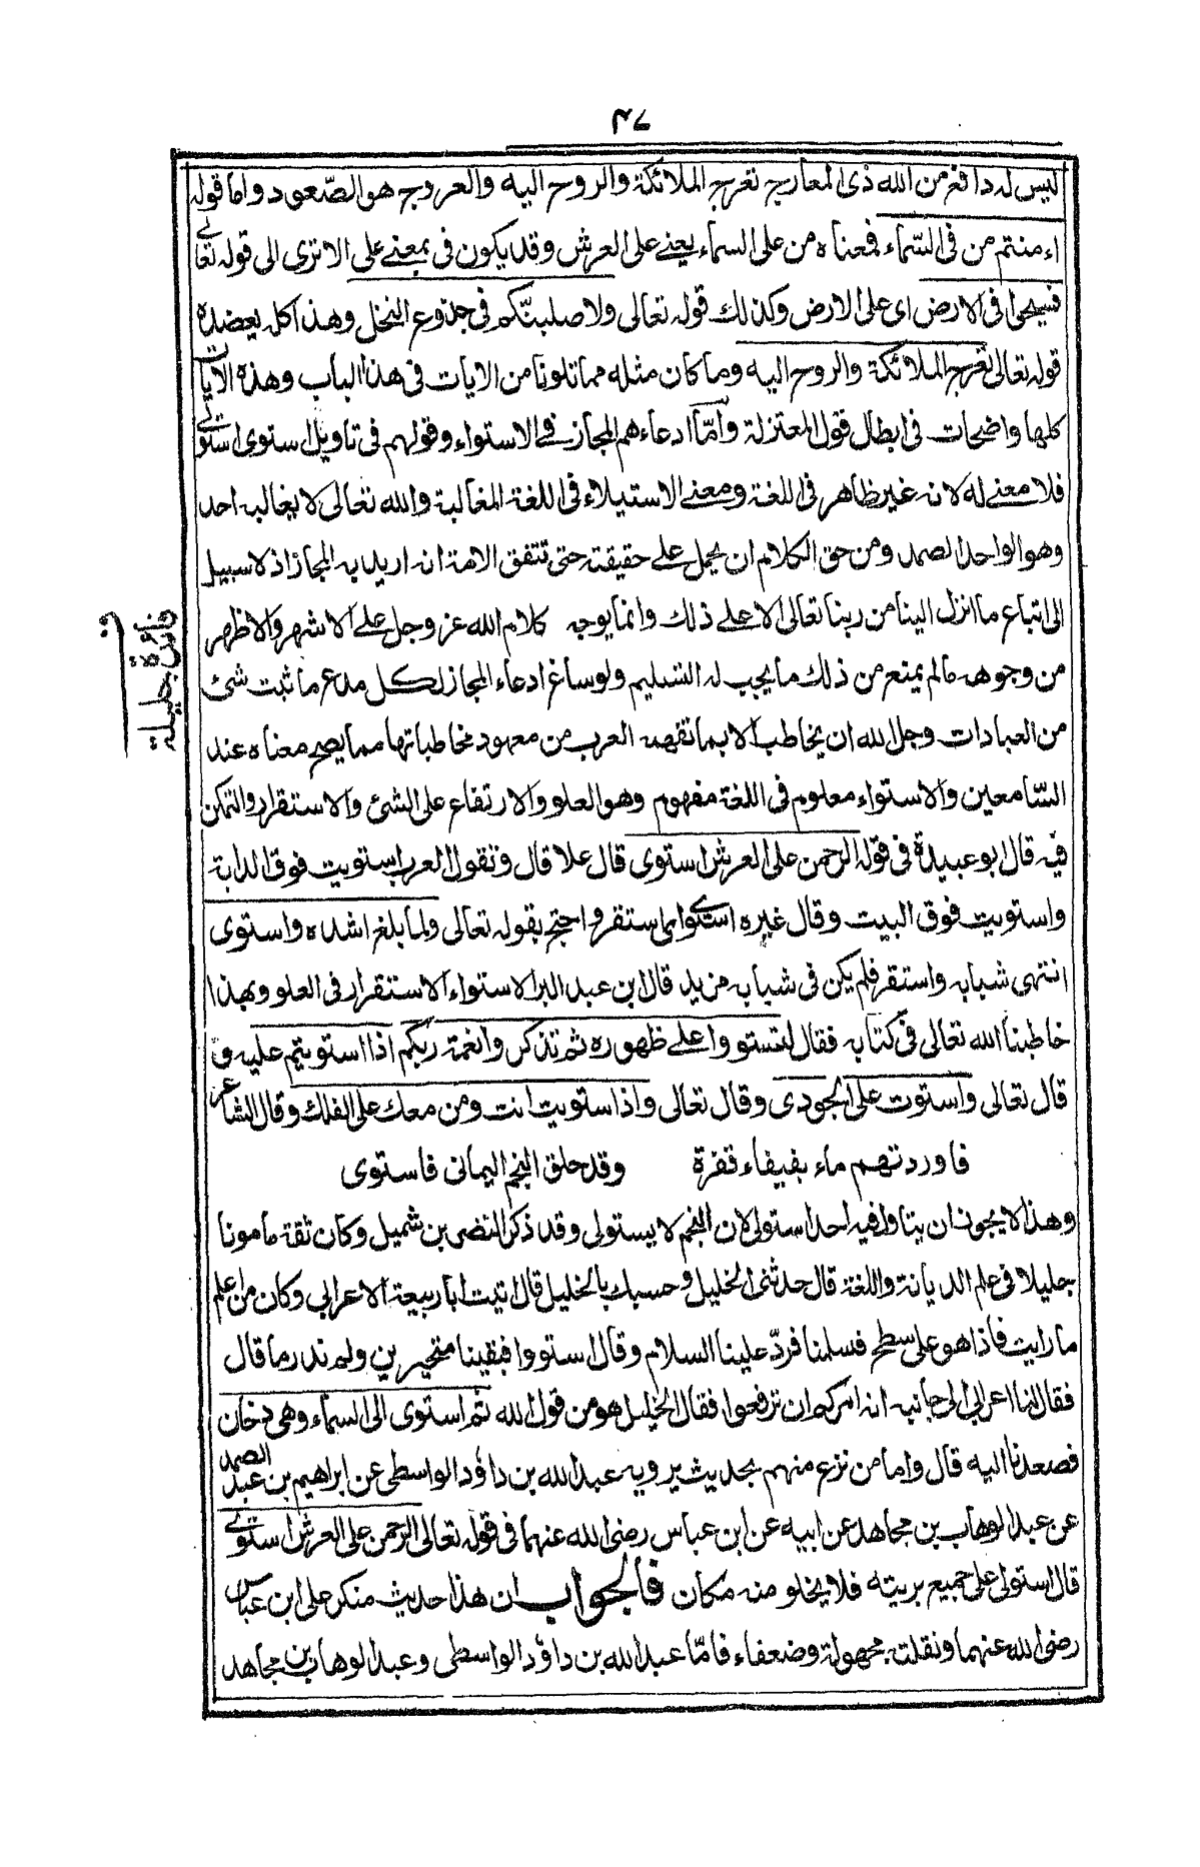 ٤٧
ليس له دافع من الله ذى المعارج تعرج الملائكة والروح اليه والعروج هو الصّعود واما قوله
ءامنتم من فى السّماء فمعناه من على السماء يعنے على العرش وقد يكون فى بمعنے على الا ترى الى قوله تعالے
فسيحوا فى الارض اى على الارض وكذلك قوله تعالى ولاصلبنّكم فى جذوع النخل وهذا كله يعضده
قوله تعالى تعرج الملائكة والروح اليه وما كان مثله مما تلونا من الايات فى هذا الباب وهذه الايات
كلها واضحات فى ابطال قول المعتزلة وامّا ادعاءهم المجاز فے الاستواء وقولهم فى تاويل استوى استولے
فلا معنے له لانه غير ظاهر فى اللغة ومعنے الاستيلاء فى اللغة المغالبة والله تعالى لا يغالبه احد
وهو الواحد الصمد ومن حق الكلام ان يحمل علے حقيقته حتى تتفق الامة انه اريد به المجاز اذ لا سبيل
الى اتباع ما انزل الينا من ربنا تعالى الا علے ذلك وانما يوجه كلام الله عز وجل علے الاشهر والاظهر
من وجوهه مالم يمنع من ذلك ما يجب له التسليم ولو ساغ ادعاء المجاز لكل مدع ما ثبت شئ
من العبادات وجل الله ان يخاطب الا بما تفهمه العرب من معهود مخاطباتها مما يصح معناه عند
السّامعين والاستواء معلوم فى اللغة مفهوم وهو العلو والارتفاع على الشئ والاستقرار والتمكن
فيه قال ابو عبيدة فى قوله الرحمن على العرش استوى قال علا قال وتقول العرب استويت فوق الدابة
واستويت فوق البيت وقال غيره استوے اى استقر واحتج بقوله تعالى ولما بلغ اشده واستوى
انتهى شبابه واستقر فلم يكن فى شبابه مزيد قال ابن عبد البر الاستواء الاستقرار فى العلو وبهذا
خاطبنا الله تعالى فى كتابه فقال لتستووا علے ظهوره ثم تذكروا نعمة ربكم اذا استويتم عليه و
قال تعالى واستوت على الجودى وقال تعالى واذا استويت انت ومن معك على الفلك وقال الشاعر
فاوردتهم ماء بفيفاء قفرة وقد حلق النجم اليمانى فاستوى
وهذا لا يجوز ان يتاول فيه احد استولى لان النجم لا يستولى وقد ذكر النضر بن شميل وكان ثقة مامونا
جليلا فى علم الديانة واللغة قال حدثنى الخليل وحسبك بالخليل قال اتيت ابا ربيعة الاعرابي وكان من اعلم
ما رايت فاذا هو على سطح فسلمنا فردّ علينا السلام وقال استووا فبقينا متحيرين ولم ندر ما قال
فقال لنا اعرابي الى جانبه انه امركم ان ترفعوا فقال الخليل هو من قول الله ثم استوى الى السماء وهى دخان
فصعدنا اليه قال واما من نزع منهم بحديث يرويه عبد الله بن داؤد الواسطى عن ابراهيم بن عبد الصمد
عن عبد الوهاب بن مجاهد عن ابيه عن ابن عباس رضى الله عنهما فى قوله تعالى الرحمن على العرش استوے
قال استولى على جميع بريته فلا يخلو منه مكان فالجواب ان هذا حديث منكر على ابن عباس
رضى الله عنهما ونقلته مجهولة وضعفاء فامّا عبد الله بن داؤد الواسطى وعبد الوهاب بن مجاهد
فائدة جليلة